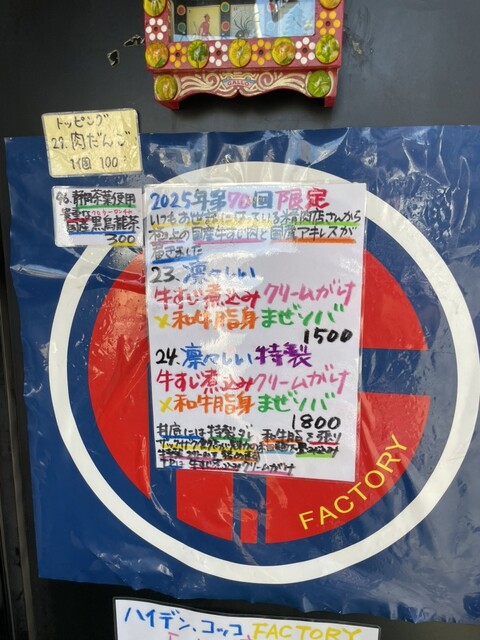 トッピング
27. 肉だんご
1個 100
96. 静岡茶葉使用
国産黒烏龍茶
300
2025年第70回限定
いつもお世話になっている精肉店さんから
極上の国産牛すじ肉と国産アキレスが
届きました
23. 凛々しい
牛すじ煮込みクリームがけ
×和牛脂身まぜソバ
1500
24. 凛々しい特製
牛すじ煮込みクリームがけ
×和牛脂身まぜソバ
1800
丼底には特製タレ 和牛脂を張り
牛すじ煮込みクリームがけ
FACTORY
ハイデン.コッコ.FACTORY